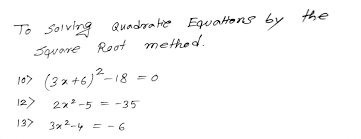 To Solving Quadratic Equations by the
Square Root method.
10> (3x+6)²-18 = 0
12> 2x²-5 = -35
13> 3x²-4 = -6